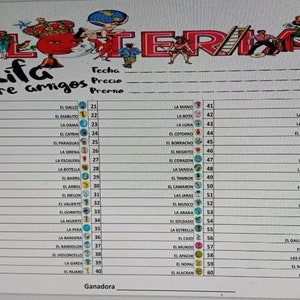 LOTERI
ifa
re amigos
Fecha
Precio
Premio
EL GALLO 21 LA MANO 41
EL DIABLITO 22 LA BOTA 42
LA DAMA 23 LA LUNA 43
EL CATRIN 24 EL COTORRO 44
EL PARAGUAS 25 EL BORRACHO 45
LA SIRENA 26 EL NEGRITO 46
LA ESCALERA 27 EL CORAZON 47
LA BOTELLA 28 LA SANDIA 48
EL BARRIL 29 EL TAMBOR 49
EL ARBOL 30 EL CAMARON 50
EL MELON 31 LAS JARAS 51
EL VALIENTE 32 EL MUSICO 52
EL GORRITO 33 LA ARAÑA 53
LA MUERTE 34 EL SOLDADO 54
LA PERA 35 LA ESTRELLA 55
LA BANDERA 36 EL CAZO 56
EL BANDOLON 37 EL MUNDO 57
EL VIOLONCELLO 38 EL APACHE 58
LA GARZA 39 EL NOPAL 59
EL PAJARO 40 EL ALACRAN 60
Ganadora